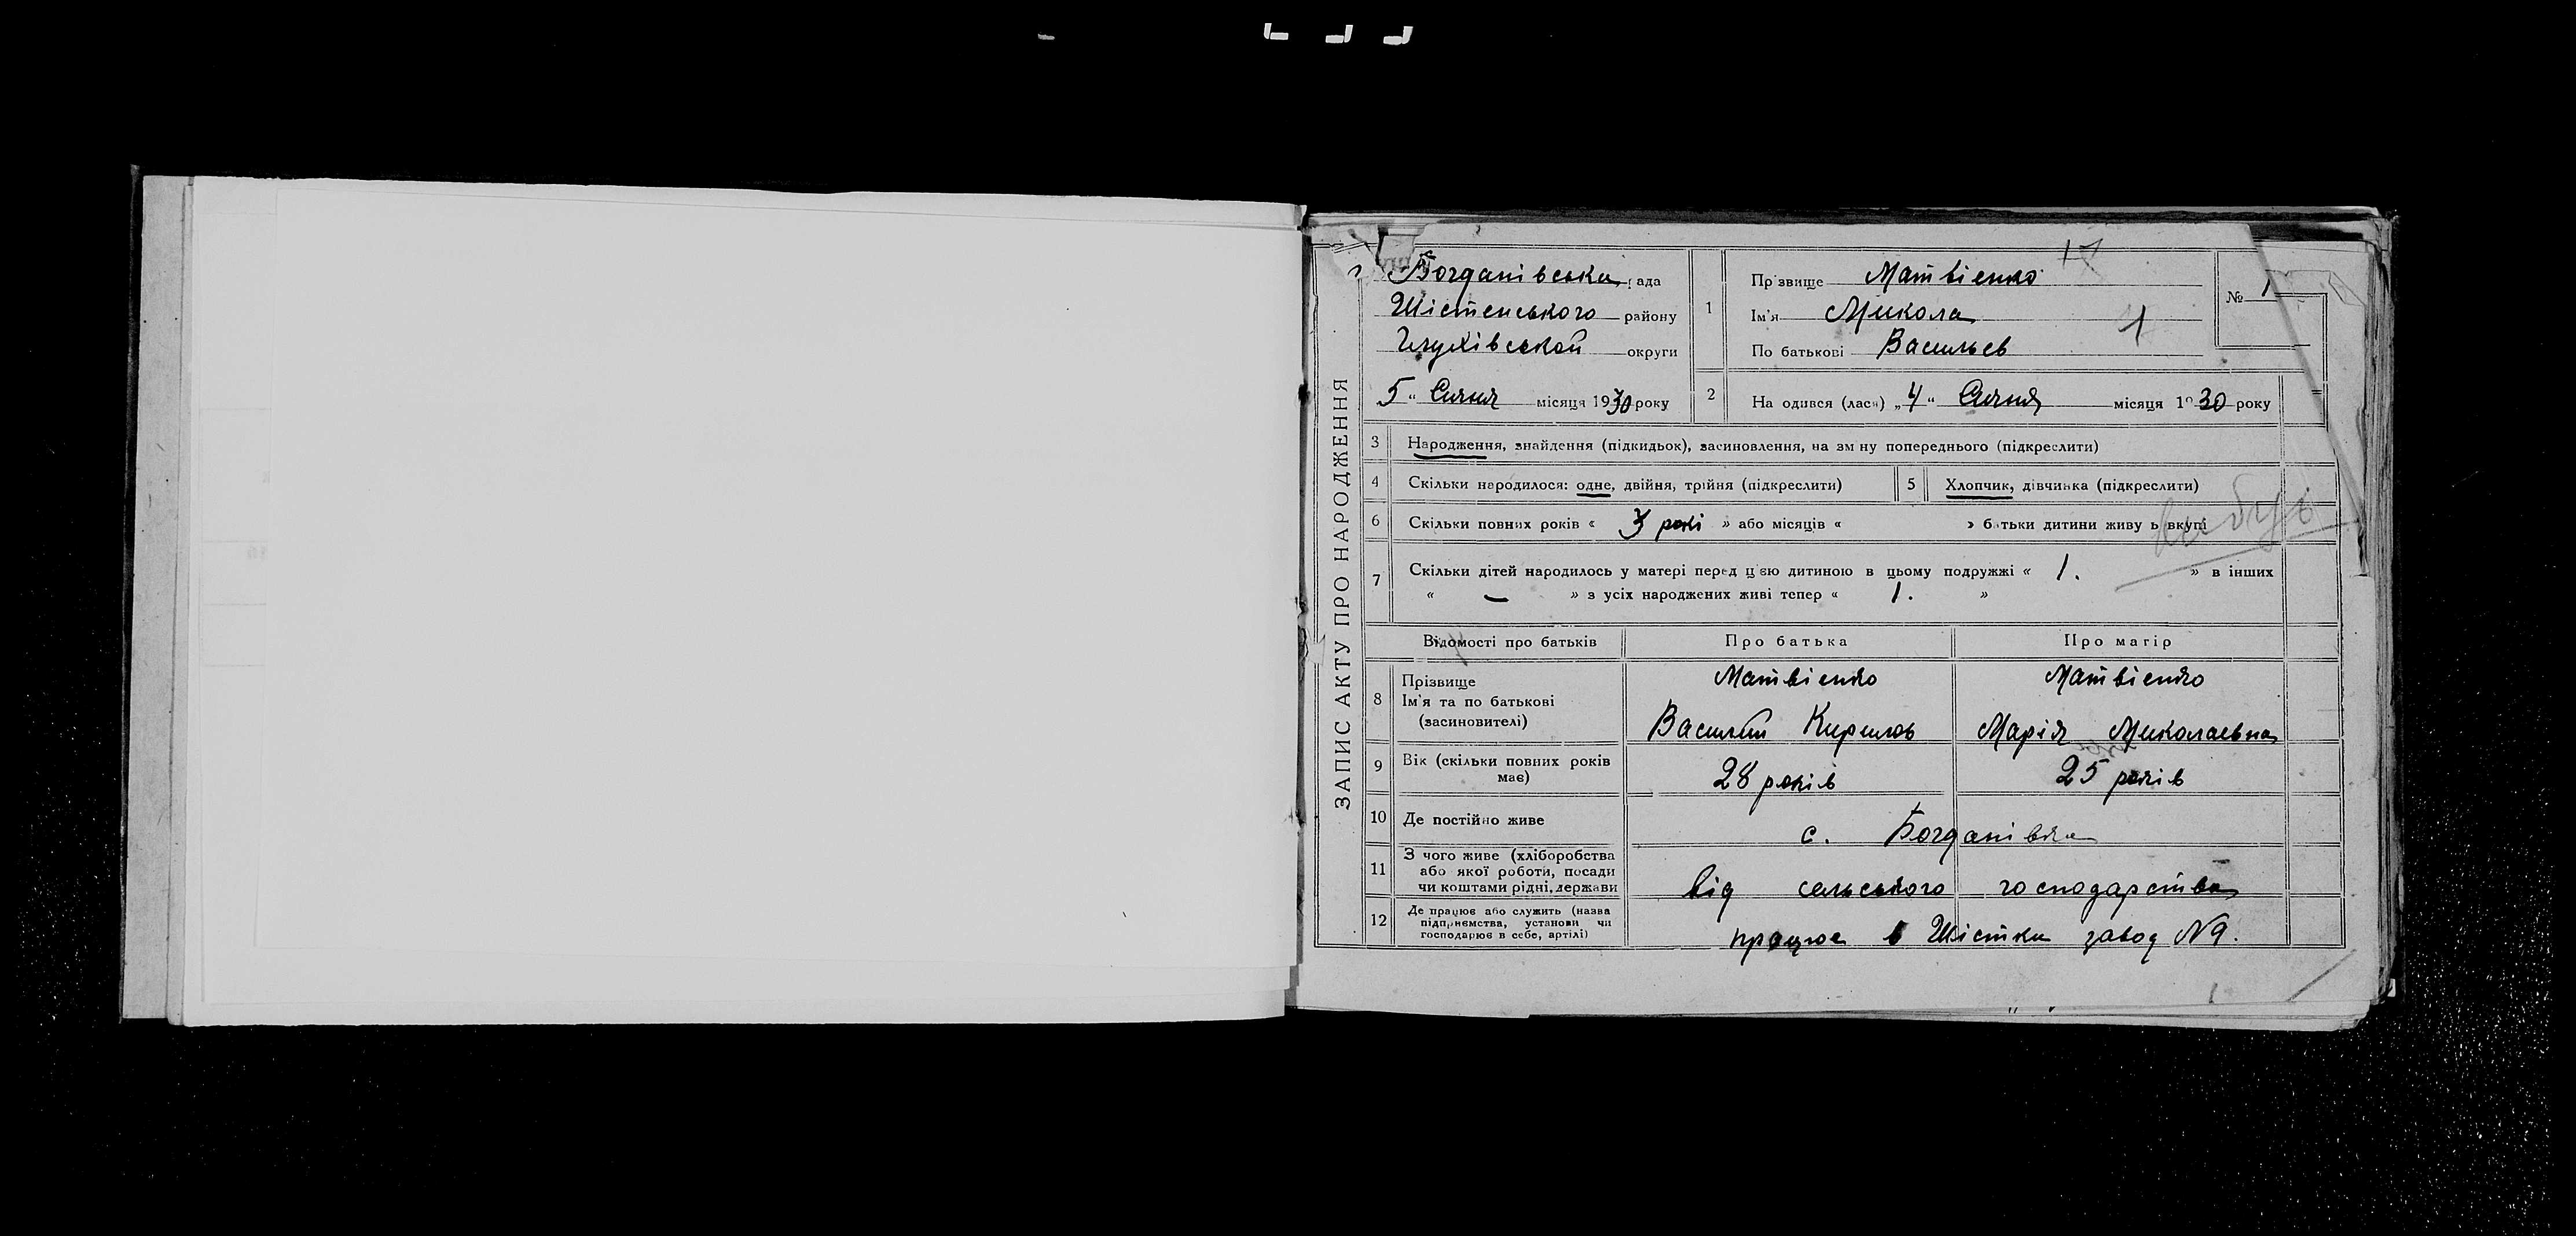 ЗАПИС АКТУ ПРО НАРОДЖЕННЯ
Богданівська рада
Шістенського району
Глухівськой округи
5 " Січня місяця 1930 року
17
1 Прізвище Матвієнко
Ім'я Микола
По батькові Васильев
1
№ 1
2 На одився (лася) „ 4 “ Січня місяця 1930 року
3 Народження, знайдення (підкидьок), засиновлення, на зм ну попереднього (підкреслити)
4 Скільки народилося: одне, двійня, трійня (підкреслити)
5 Хлопчик, дівчинка (підкреслити)
6 Скільки повних років « 3 рокі » або місяців « » батьки дитини живу ь вкупі
7 Скільки дітей народилось у матері перед цією дитиною в цьому подружжі « 1. » в інших
« — » з усіх народжених живі тепер « 1. »
Відомості про батьків Про батька Про матір
8 Прізвище Ім'я та по батькові (засиновителі)
Матвієнко Матвієнко
Василий Кирилов Марія Миколаевна
9 Вік (скільки повних років має) 28 років 25 років
10 Де постійно живе с. Богданівка
11 З чого живе (хліборобства або якої роботи, посади чи коштами рідні, держави
від сельського господарства
12 Де працює або служить (назва підприємства, установи чи господарює в себе, артілі)
працюе в Шістки завод №9.